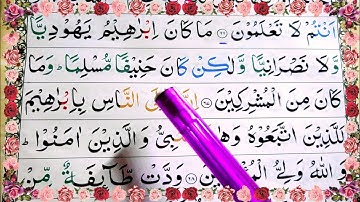 اَنْتُمْ لَا تَعْلَمُوْنَ ﴿۶۶﴾ مَا كَانَ اِبْرٰهِيْمُ يَهُوْدِيًّا
وَّلَا نَصْرَانِيًّا وَّلٰكِنْ كَانَ حَنِيْفًا مُّسْلِمًا ؕ وَمَا
كَانَ مِنَ الْمُشْرِكِيْنَ ﴿۶۷﴾ النَّاسِ بِاِبْرٰهِيْمَ
لَلَّذِيْنَ اتَّبَعُوْهُ وَهٰذَا وَالَّذِيْنَ اٰمَنُوْا ؕ
وَاللّٰهُ وَلِيُّ ﴿۶۸﴾ وَدَّتْ طَّآئِفَةٌ مِّنْ